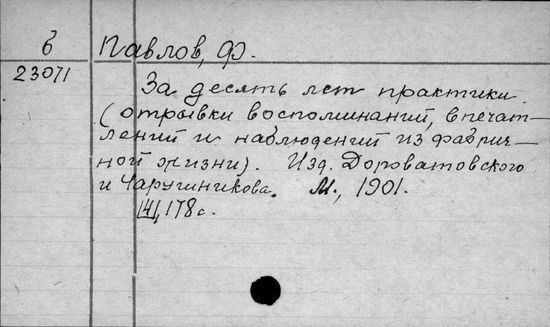 б Павлов, Ф.
23071
За десять лет практики.
(отрывки воспоминаний, впечат-
лений и наблюдений из фабрич-
ной жизни). Изд. Дороватовского
и Чарушникова. М., 1901.
[4], 178 с.